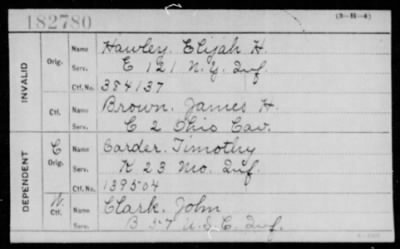 182780
(3-H-4)
INVALID
Orig.
Name Hawley. Elijah H.
Serv. E 121 N.Y. Inf.
Ctf. No. 384137
Ctf.
Name Brown. James H.
Serv. C 2 Ohio Cav.
DEPENDENT
C Orig.
Name Carder. Timothy
Serv. K 23 Mo. Inf.
Ctf. No. 139504
W. Ctf.
Name Clark. John
Serv. B 57 U.S.C. Inf.